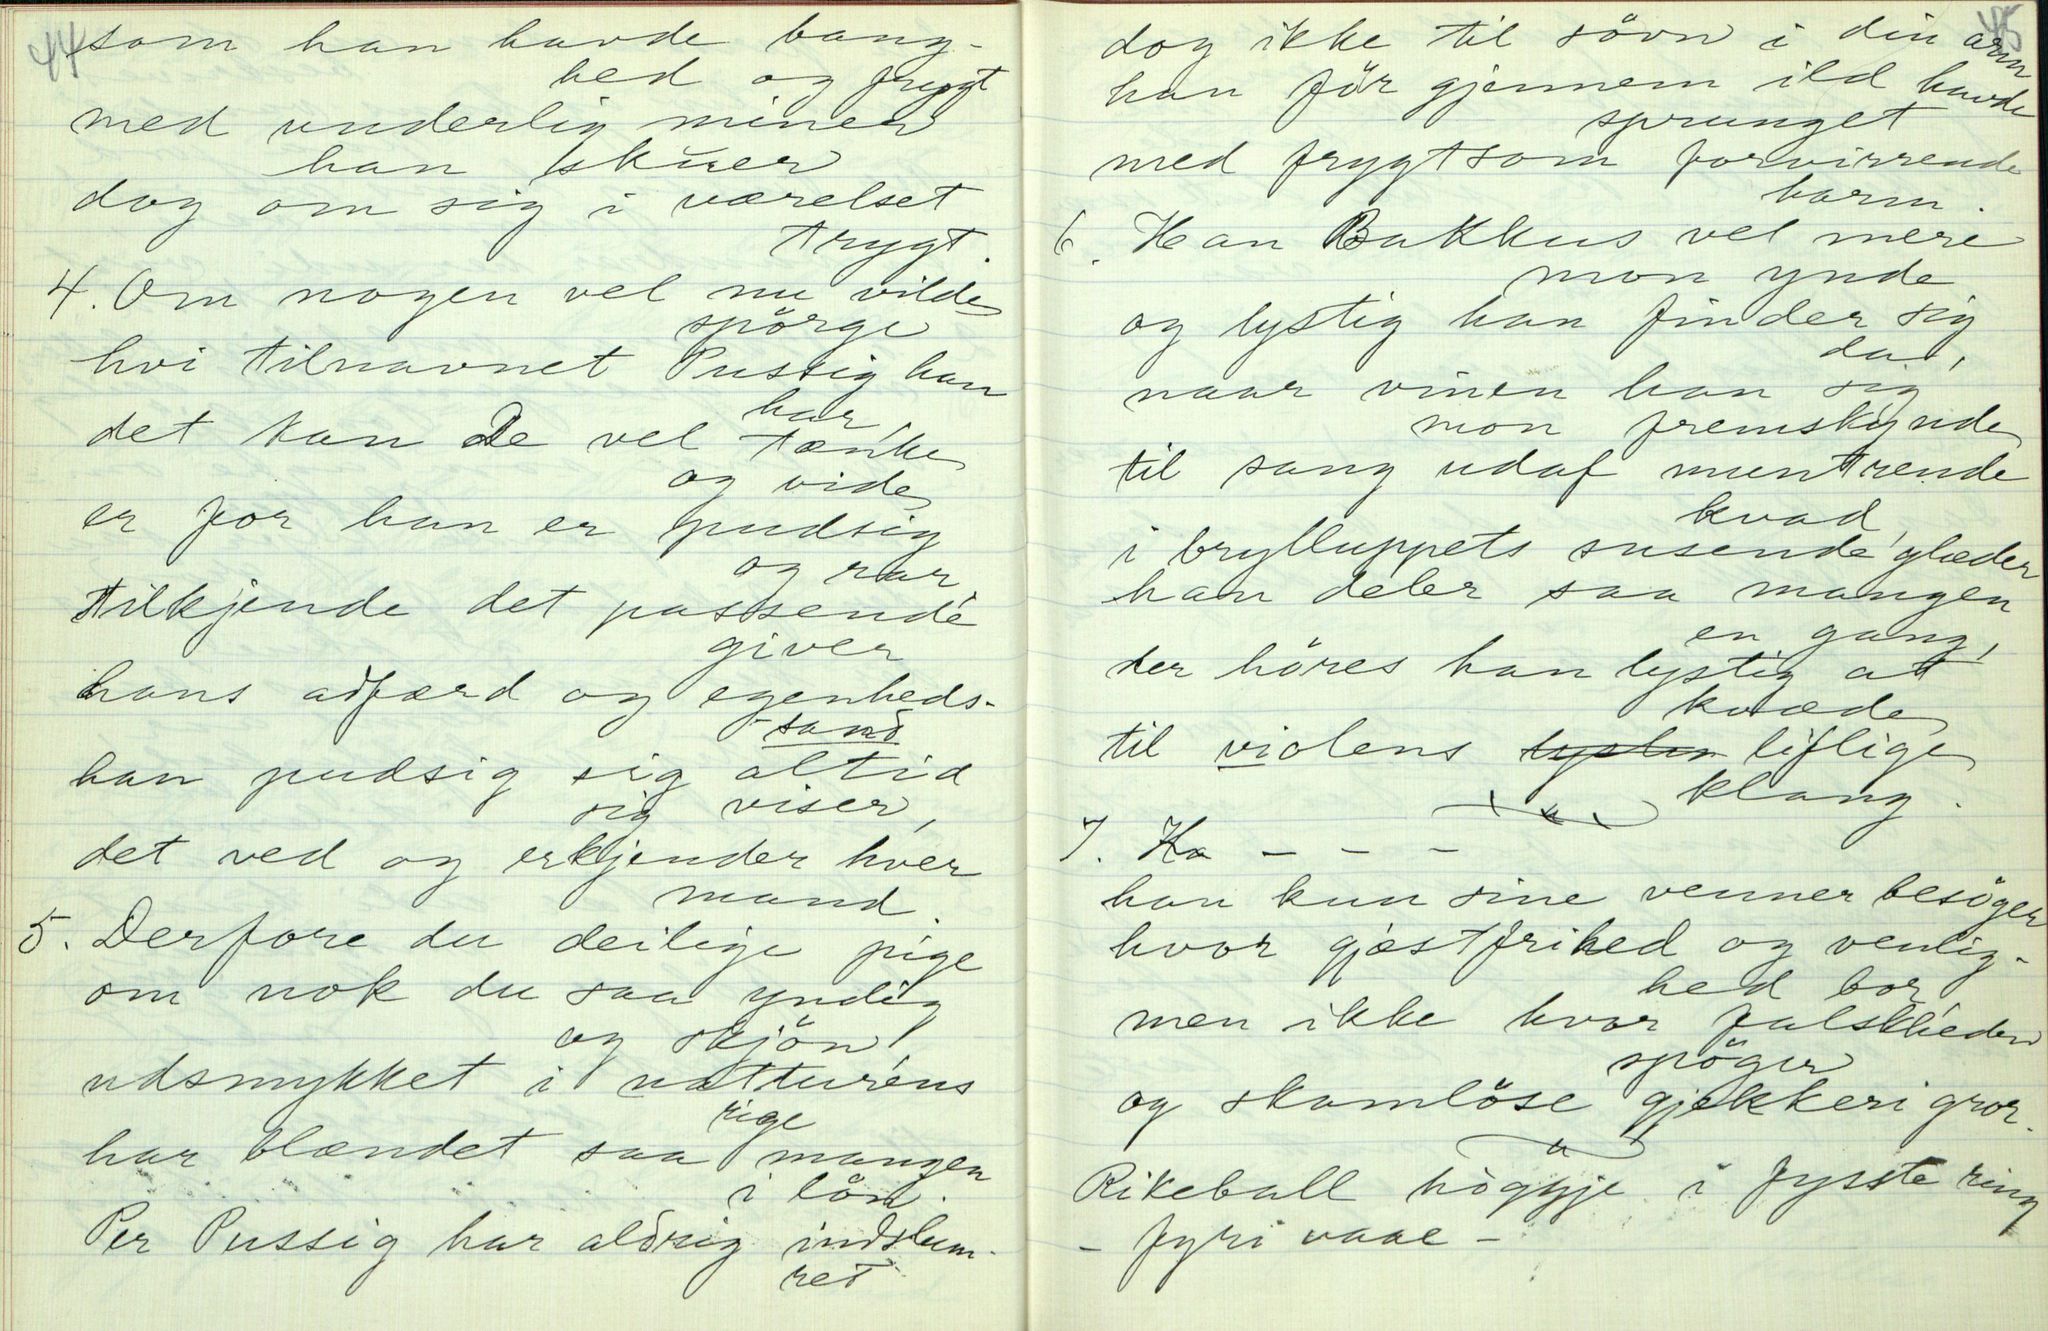 44
som han havde bang-
hed og frygt
med underlig miner
han skuer
dog om sig i værelset
trygt.
4. Om nogen vel nu vilde
spörge
hvi tilnavnet Pussig han
har,
det kan De vel tænke
og vide
er for han er pudsig
og rar,
tilkjende det passende
giver
hans adfærd og egenheds-
-sand
han pudsig sig altid
sig viser,
det ved og erkjender hver
mand.
5. Derfore du deilige pige
om nok du saa yndig
og skjön,
udsmykket i natturens
rige
har blændet saa mangen
i lön.
Per Pussig har aldrig indslum-
ret
45
dog ikke til sövn i din arm
han för gjennem ild havde
sprunget
med frygtsom forvirrende
barm.
6. Han Bakkus vel mere
mon ynde
og lystig han finder sig
da,
naar vinen han sig
mon fremskynde
til sang udaf muntrende
kvad,
i brylluppets susende glæder
han deler saa mangen
en gang,
der höres han lystig at
kvæde
til violens lyster liflige
klang.
7. Ha - - -
han kun sine venner besöger
hvor gjæstfrihed og venlig-
hed bor,
men ikke hvor falskheden
spöger
og skamlöse gjekkeri gror.
Rikeball höggje i fysste ring
- fyri vaae -